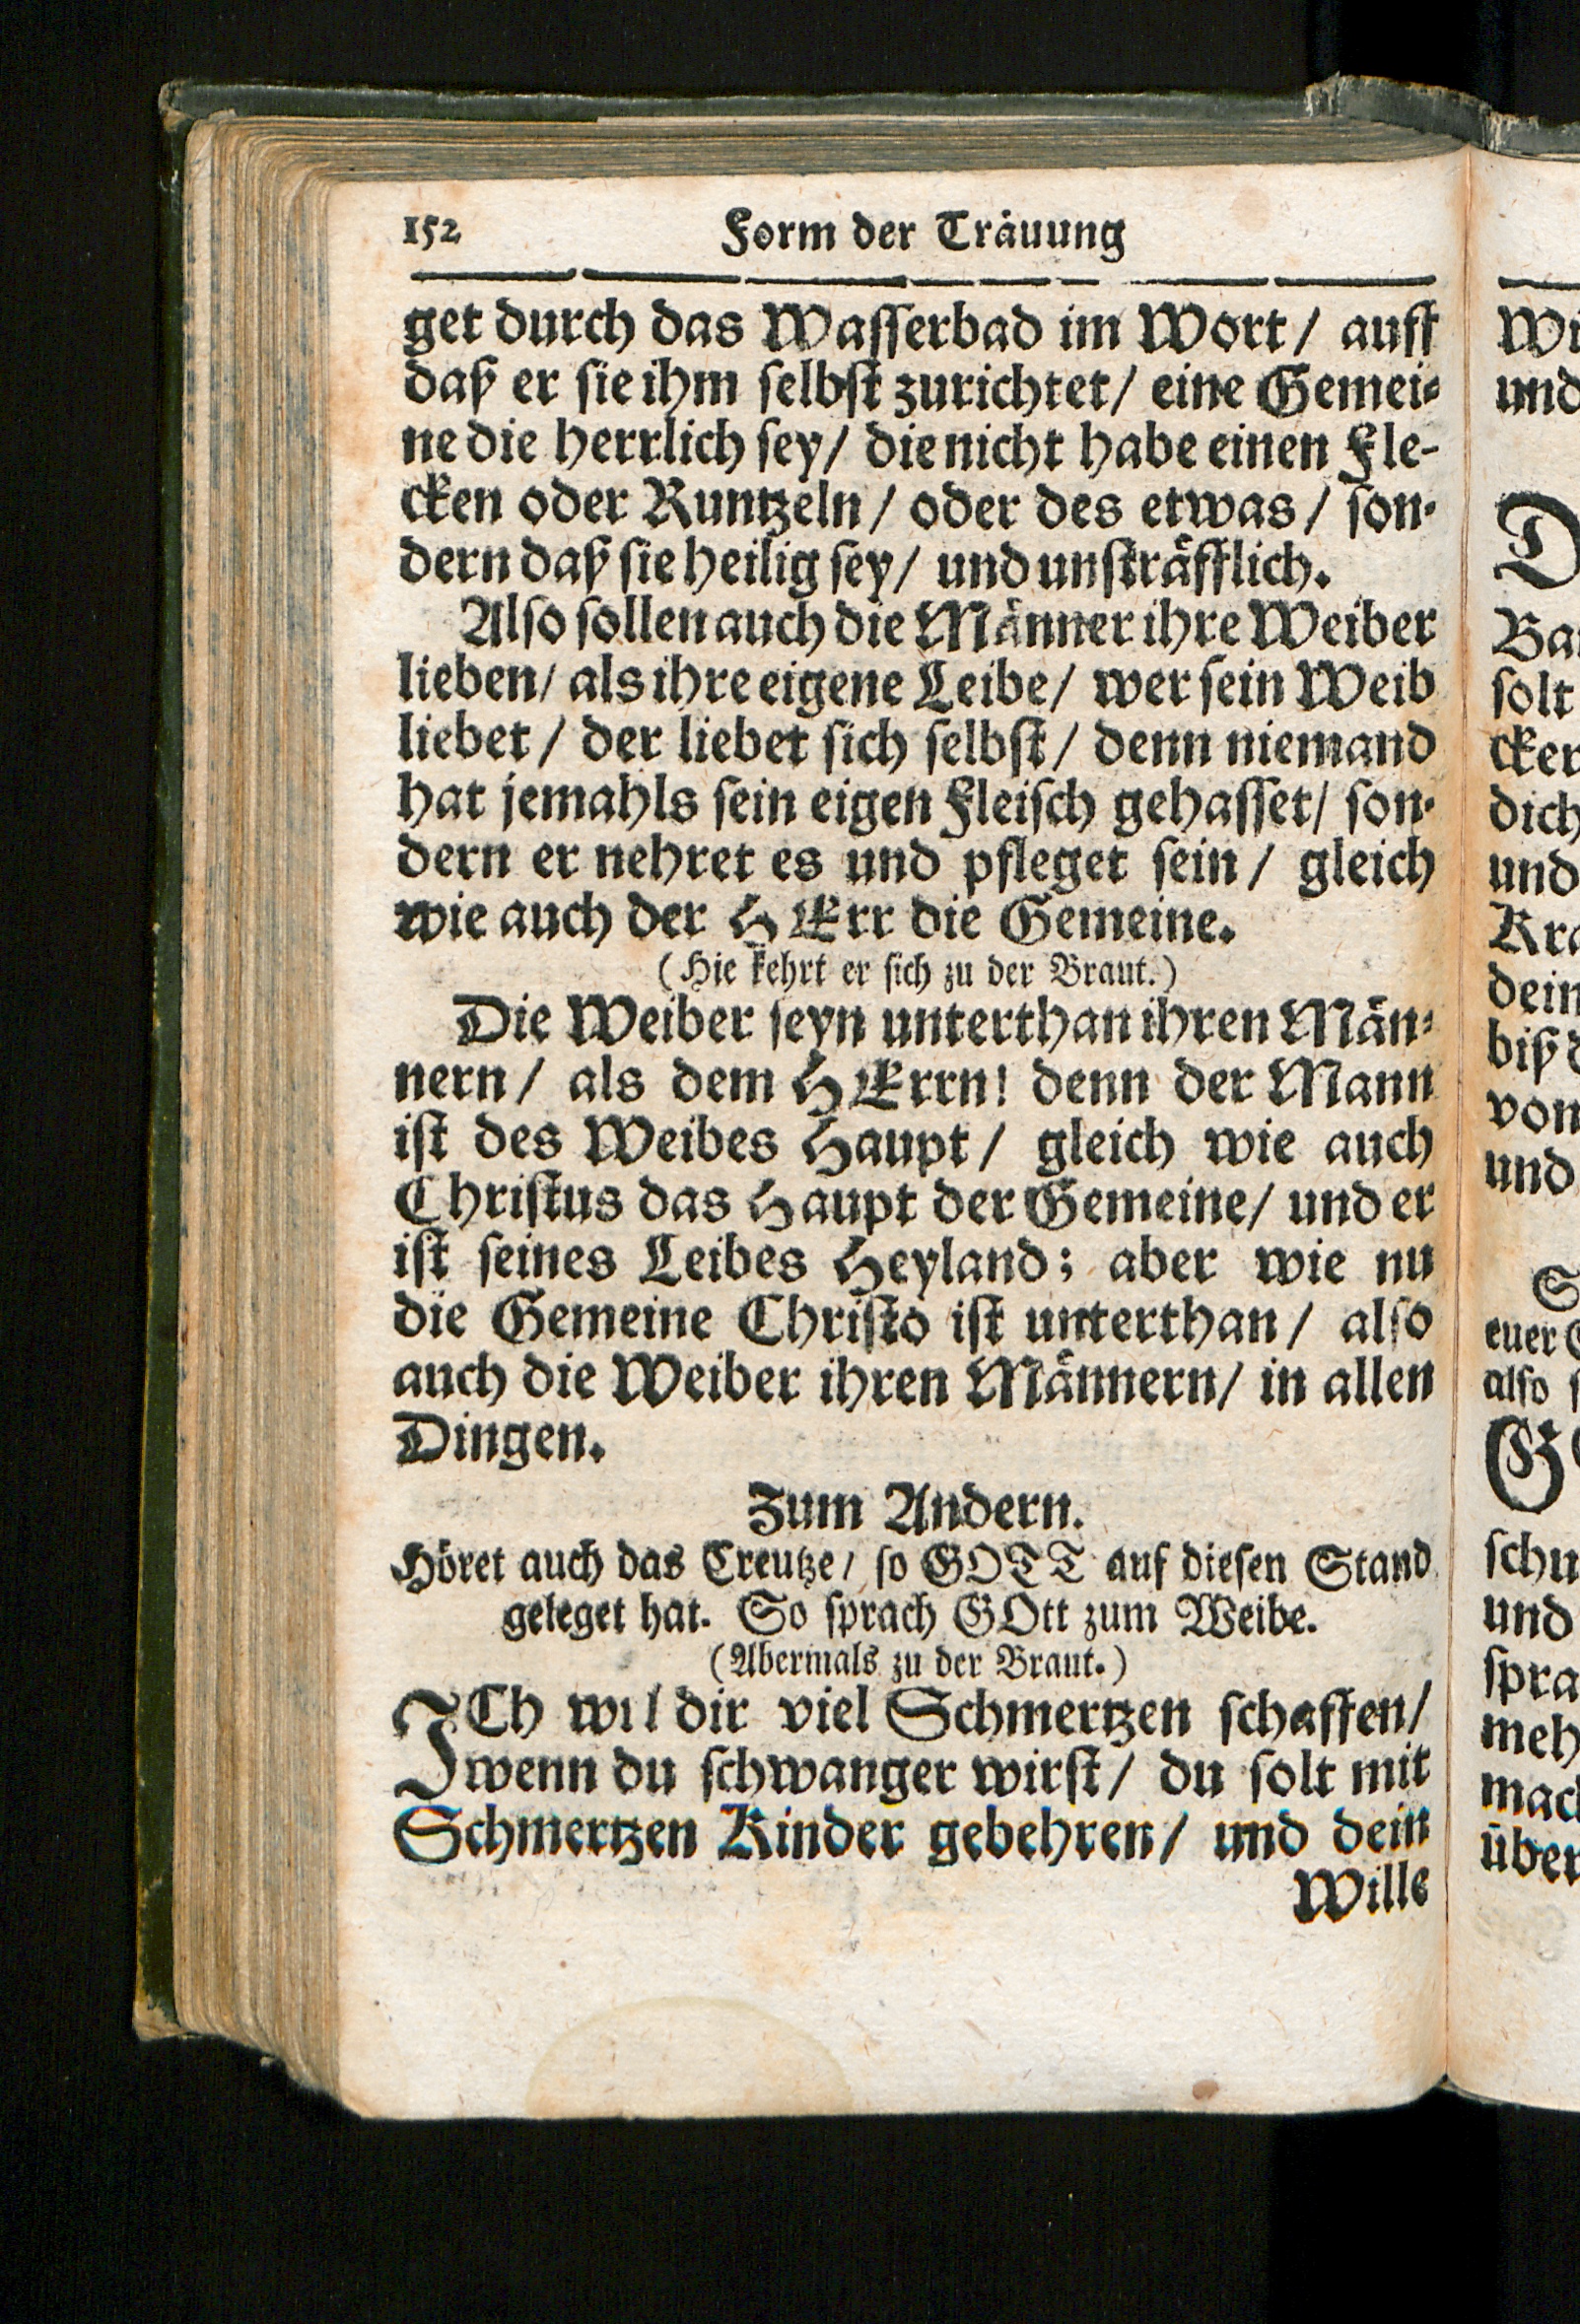 152 Form der Träuung
get durch das Wasserbad im Wort / auff
daß er sie ihm selbst zurichtet / eine Gemei⸗
ne die herrlich sey / die nicht habe einen Fle-
cken oder Runtzeln / oder des etwas / son⸗
dern daß sie heilig sey / und unsträfflich.
Also sollen auch die Männer ihre Weiber
lieben / als ihre eigene Leibe / wer sein Weib
liebet / der liebet sich selbst / denn niemand
hat jemahls sein eigen Fleisch gehasset / son⸗
dern er nehret es und pfleget sein / gleich
wie auch der HErr die Gemeine.
(Hie kehrt er sich zu der Braut.)
Die Weiber seyn unterthan ihren Män⸗
nern / als dem HErrn! denn der Mann
ist des Weibes Haupt / gleich wie auch
Christus das Haupt der Gemeine / und er
ist seines Leibes Heyland; aber wie nu
die Gemeine Christo ist unterthan / also
auch die Weiber ihren Männern / in allen
Dingen.
Zum Andern.
Höret auch das Creutze / so GOTT auf diesen Stand
geleget hat. So sprach GOtt zum Weibe.
(Abermals zu der Braut.)
ICh wil dir viel Schmertzen schaffen /
wenn du schwanger wirst / du solt mit
Schmertzen Kinder gebehren / und dein
Wille
und
Ba
solt
cker
dich
und
Kra
dein
biß d
von
und
S
euer
also s
schu
und
spra
meh
mach
über